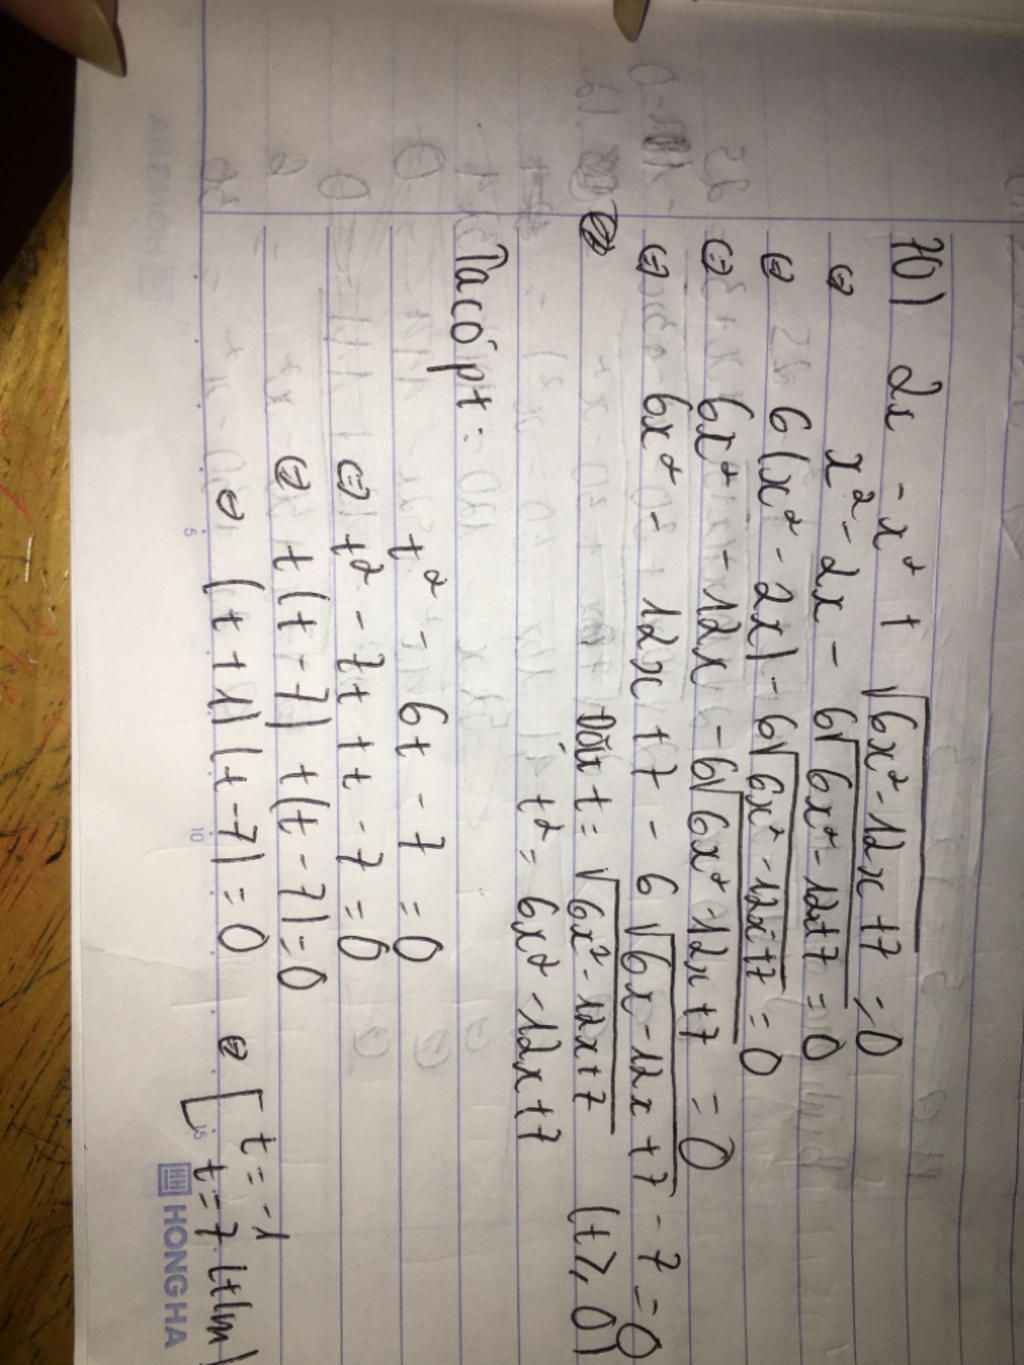 10) 2x - x² + √(6x² - 12x + 7) = 0
⇔ x² - 2x - 6√(6x² - 12x + 7) = 0
⇔ 6(x² - 2x) - 6√(6x² - 12x + 7) = 0
⇔ 6x² - 12x - 6√(6x² - 12x + 7) = 0
⇔ 6x² - 12x + 7 - 6√(6x - 12x + 7) - 7 = 0
Đặt t = √(6x² - 12x + 7) (t ≥ 0)
t² = 6x² - 12x + 7
Ta có pt:
t² - 6t - 7 = 0
⇔ t² - 7t + t - 7 = 0
⇔ t(t - 7) + (t - 7) = 0
⇔ (t + 1)(t - 7) = 0 ⇔ [ t = -1
t = 7 (tm)
HONG HA